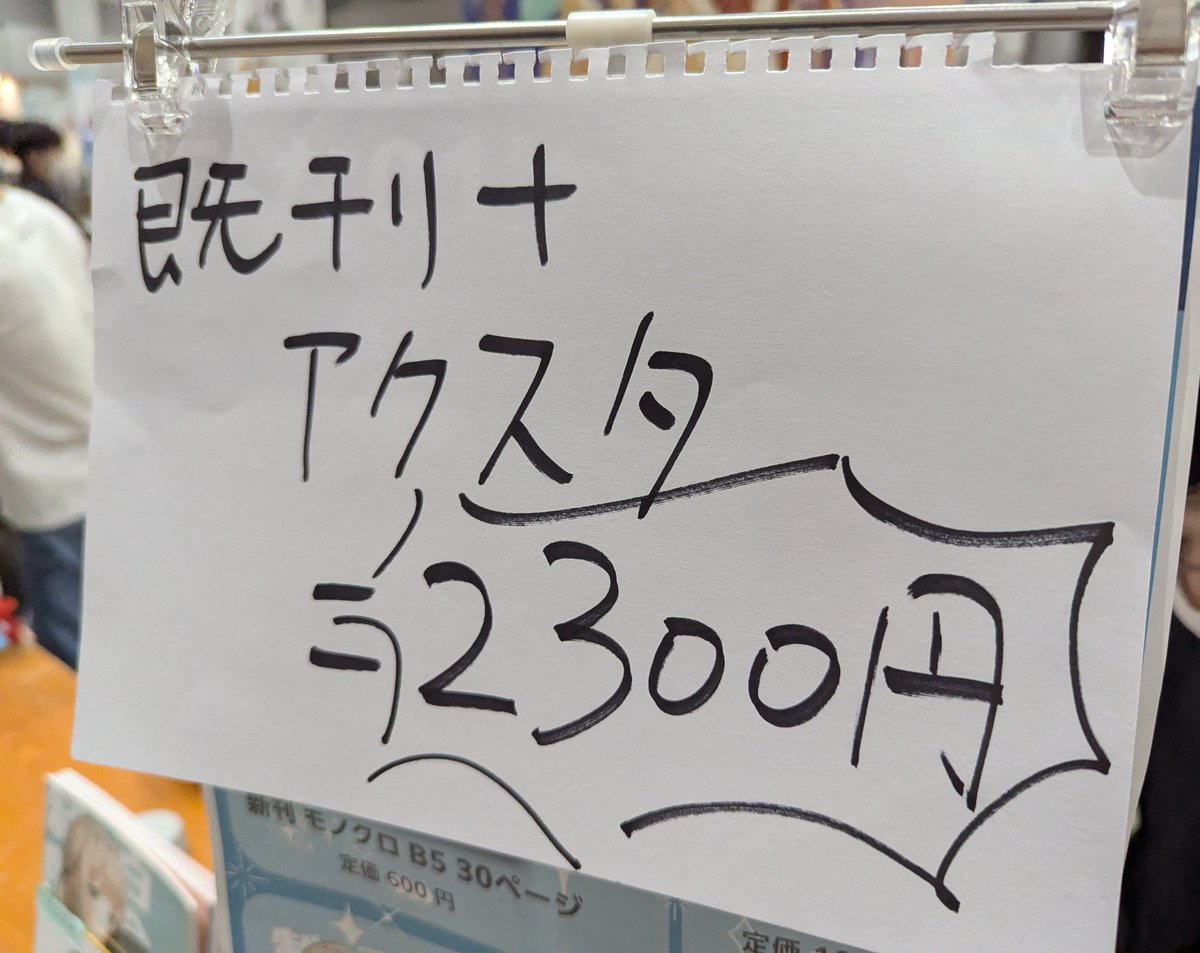 既刊+
アクスタ
=2300円
新刊 モノクロ B5 30ページ
定価 600円
定価